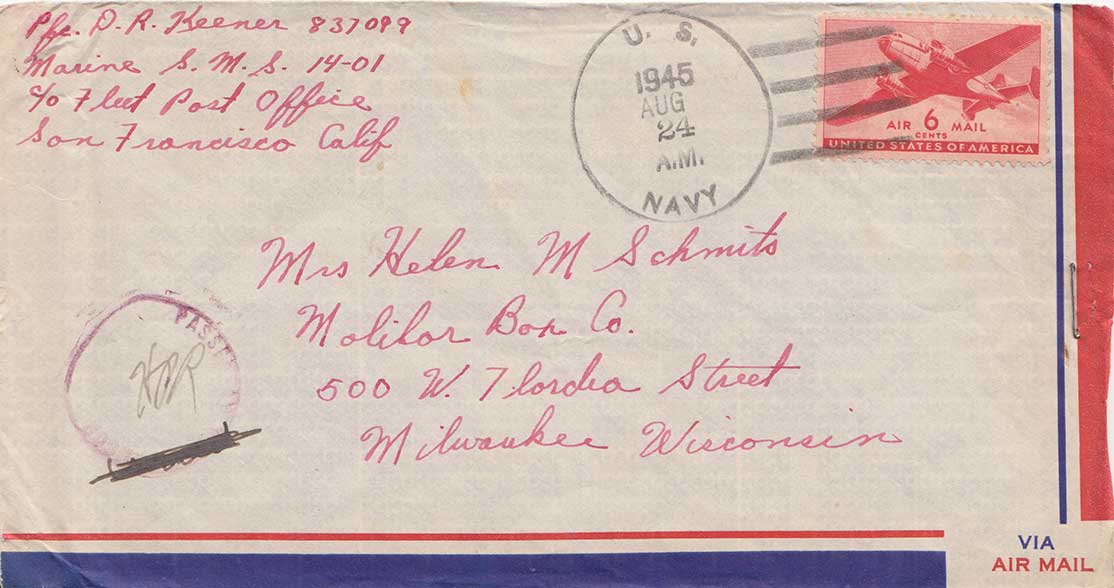 Pfc. D. R. Keener 837099
Marine S. M. S. 14-01
c/o Fleet Post Office
San Francisco Calif
U. S.
1945
AUG
24
A.M.
NAVY
AIR 6 MAIL
CENTS
UNITED STATES OF AMERICA
Mrs Helen M Schmits
Molitor Box Co.
500 W. Flordia Street
Milwaukee Wisconsin
PASSED
VIA
AIR MAIL